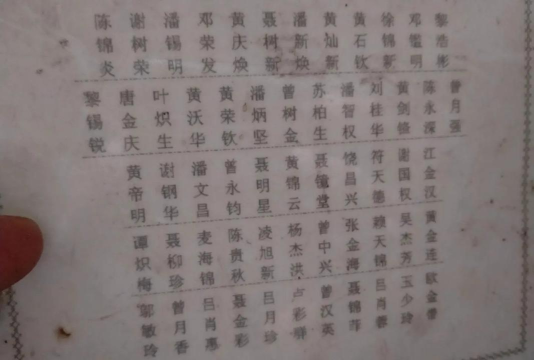 陈锦炎 谢树荣 潘锡明 邓荣发 黄庆焕 聂树新 潘新焕 黄灿新 黄石钦 徐锦新 邓明 黎浩彬
黎锡锐 唐金庆 叶炽生 黄沃华 黄荣钦 潘炳坚 曾树金 苏柏生 潘智权 刘桂华 黄剑锋 陈永深 曾月强
黄帝明 谢钢华 潘文昌 曾永钧 聂明星 黄锦云 聂镜堂 饶昌兴 符天德 谢国权 江金汉
谭炽梅 聂柳珍 麦海锦 陈贵秋 凌旭新 杨杰洪 曾中兴 张金海 赖天锦 吴杰芳 黄金连
敏玲 曾月香 吕肖惠 聂金彩 吕月珍 卢彩 曾汉英 聂锦 吕肖 少玲 欧金